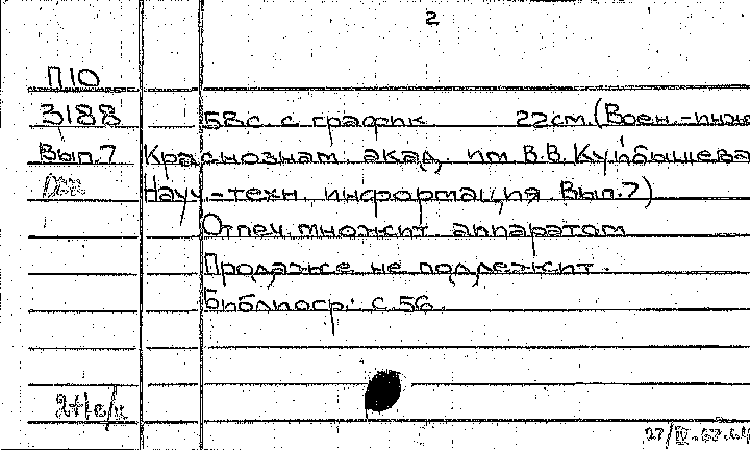 2
П10
3188 58с. с график 22см. (Воен.-инже
Вып.7 Краснознам. акад. им В.В. Куйбышева
Науч.-техн. информация Вып.7)
Отпеч. множит. аппаратом
Продаже не подлежит.
Библиогр.: с. 56.